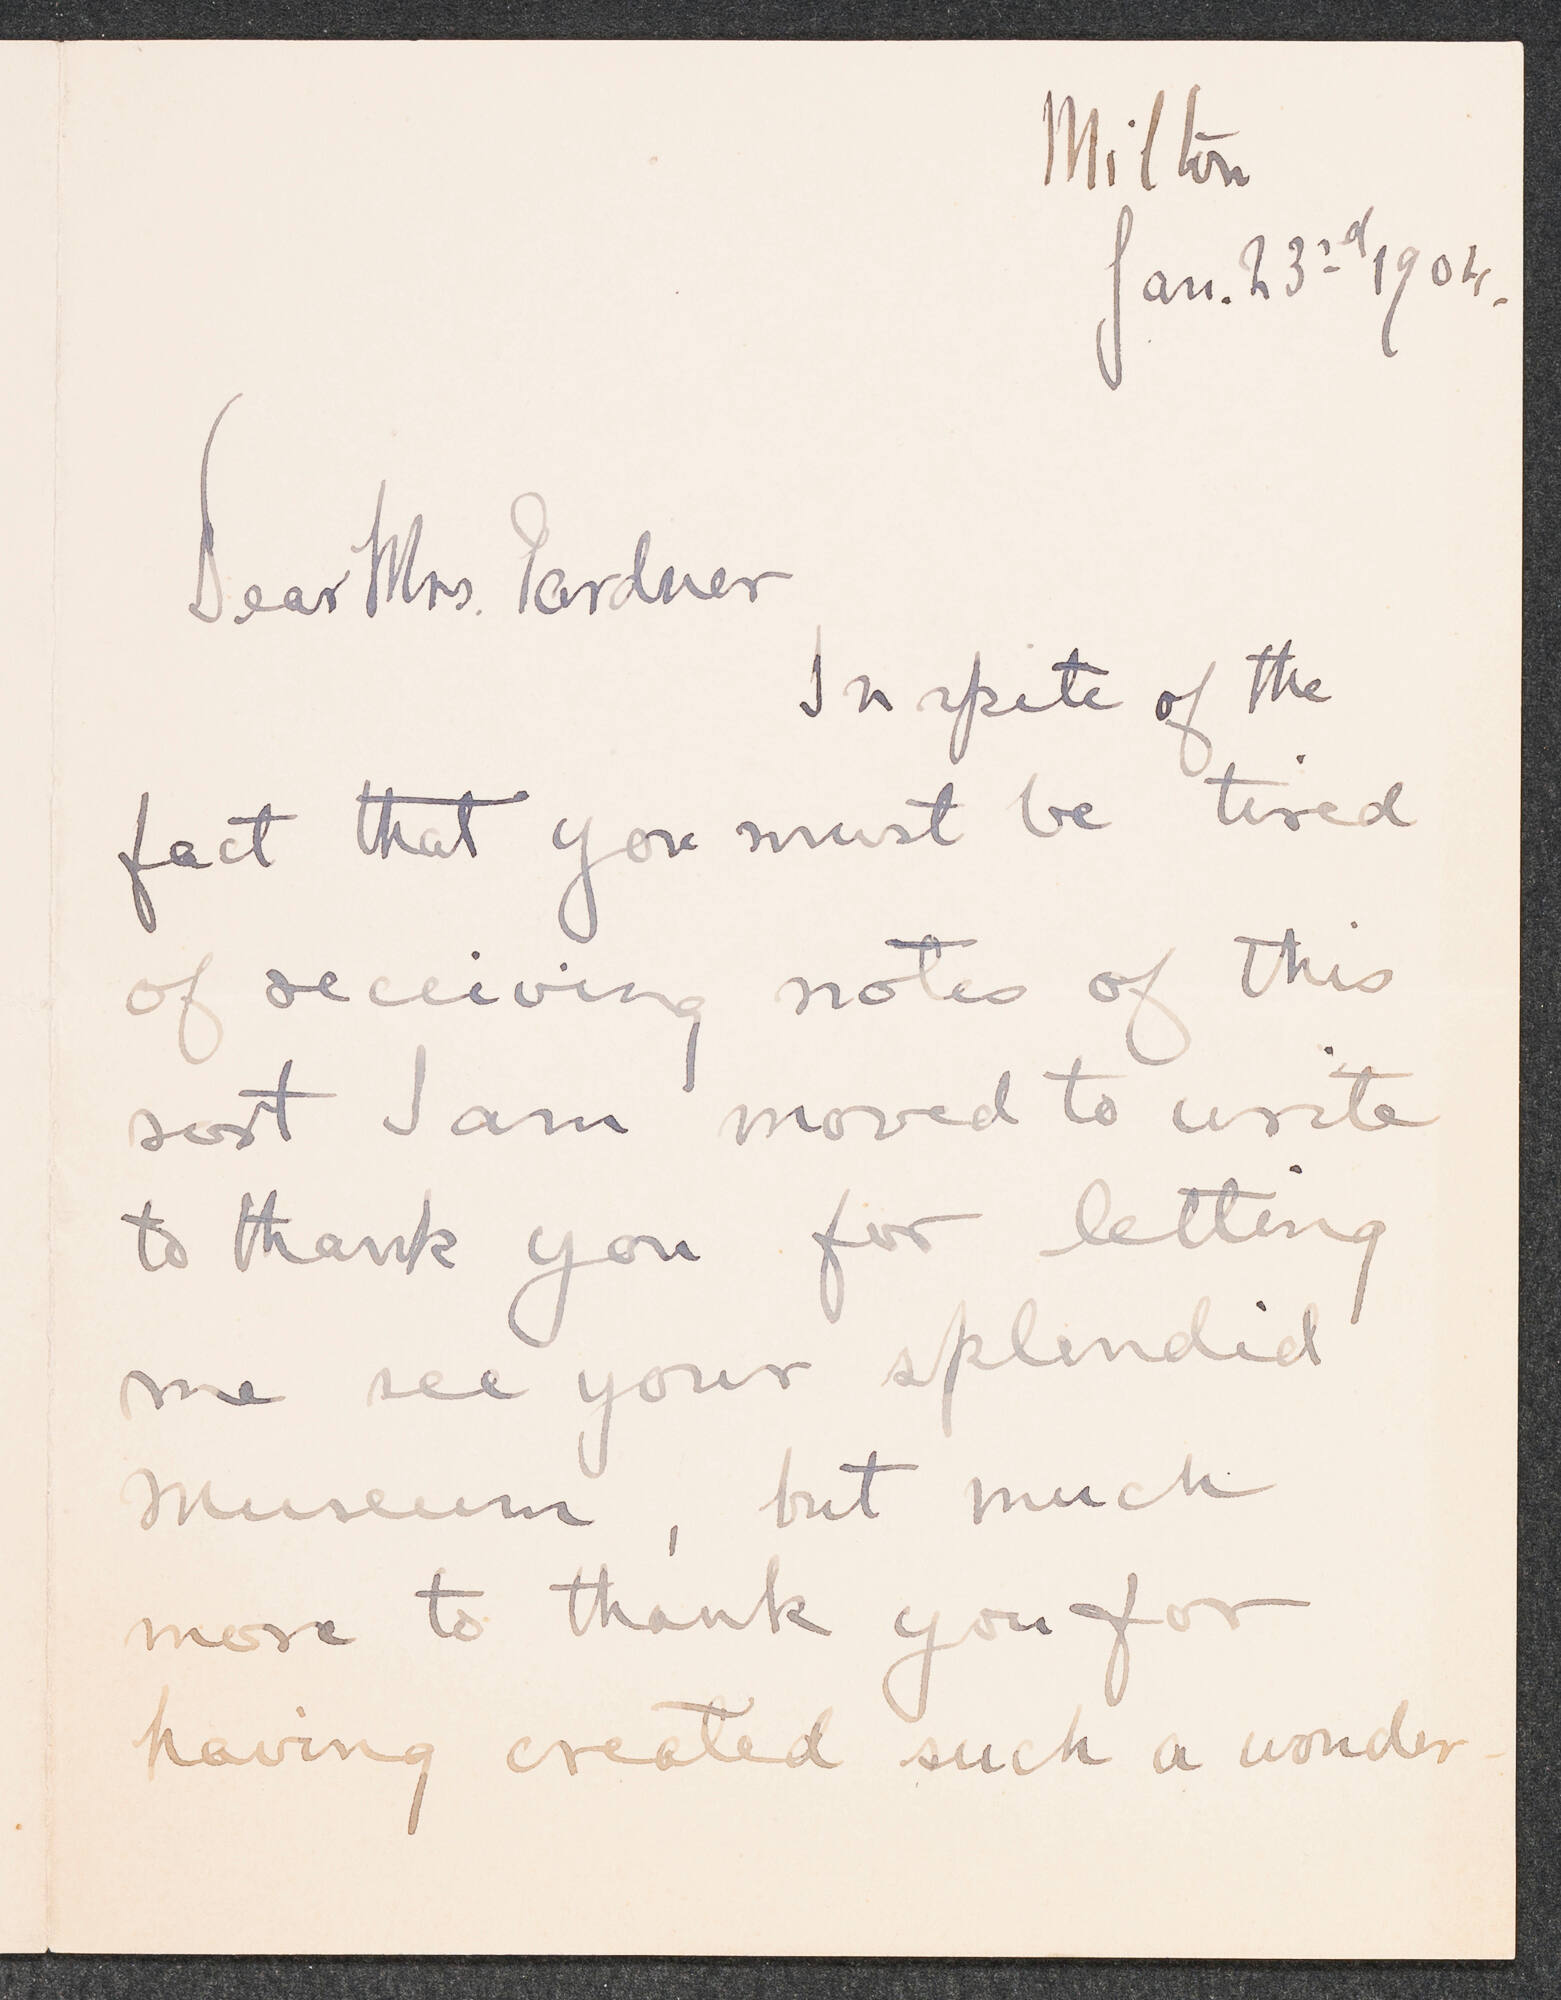 Milton
Jan. 23rd 1904.
Dear Mrs. Gardner
In spite of the
fact that you must be tired
of receiving notes of this
sort I am moved to write
to thank you for letting
me see your splendid
Museum, but much
more to thank you for
having created such a wonder-